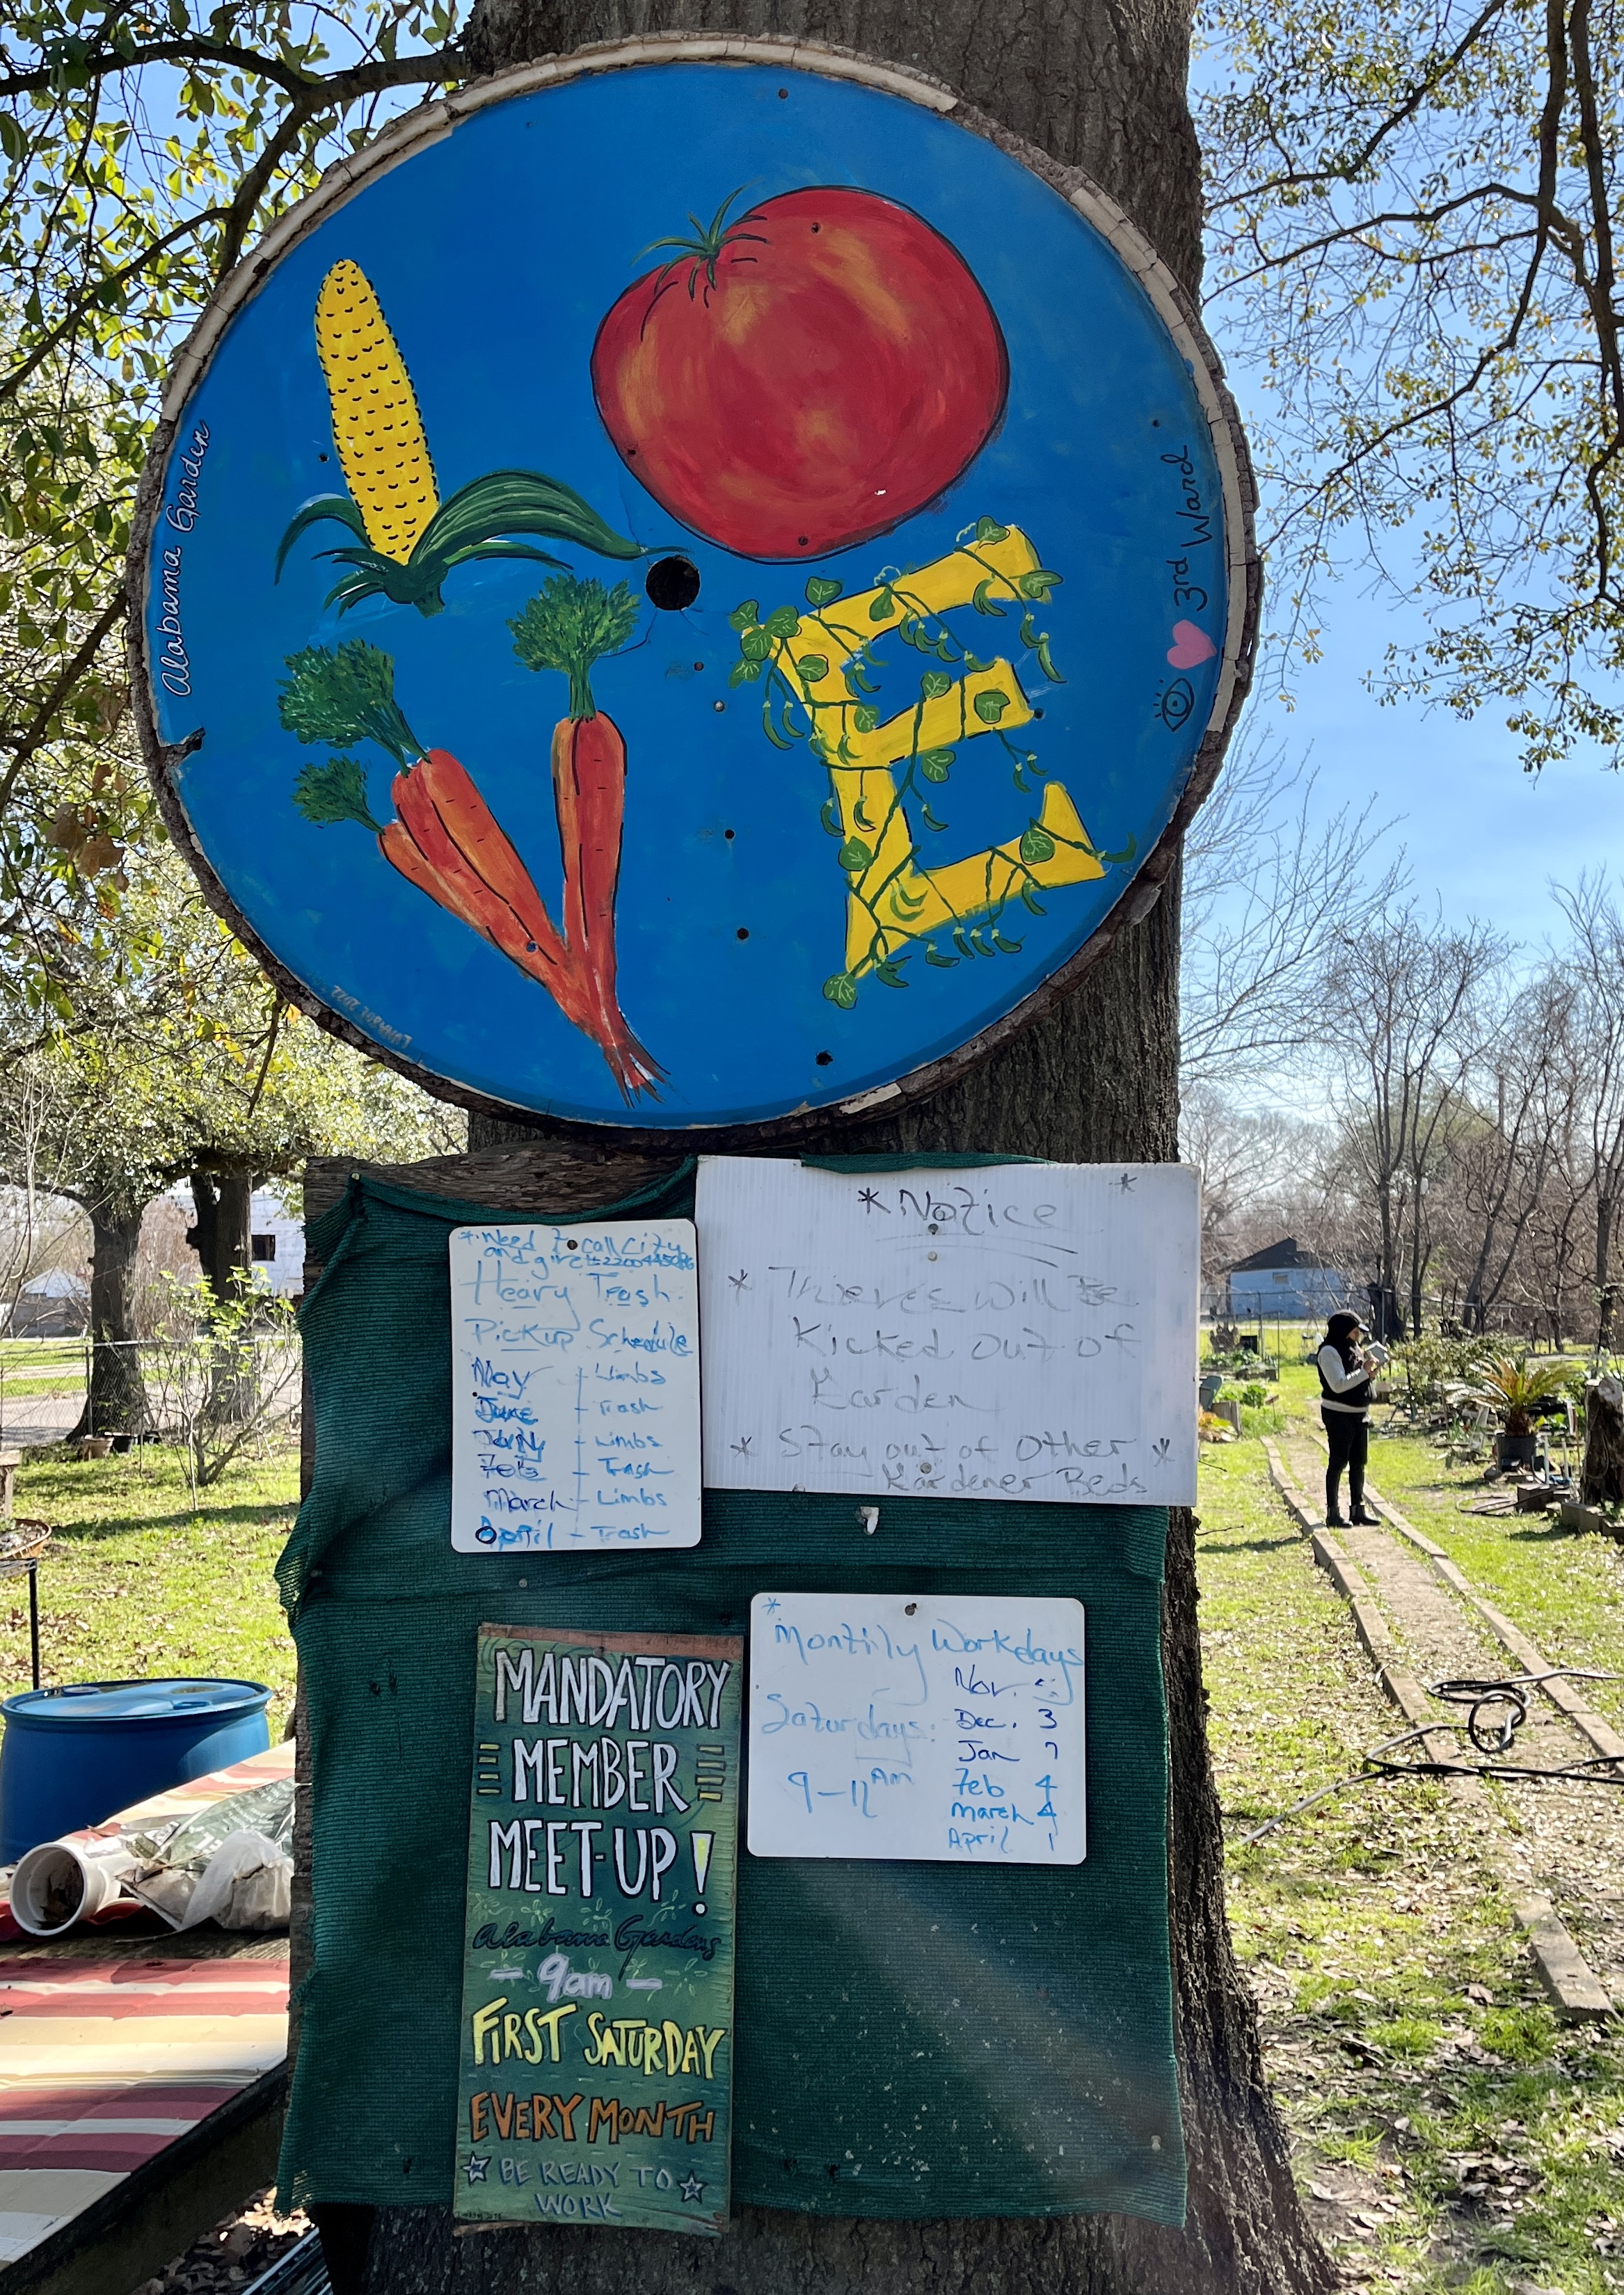 Alabama Garden
3rd Ward
* Need to call City
and give #2200445086
Heavy Trash
Pickup Schedule
May - Limbs
June - Trash
- Limbs
Feb - Trash
March - Limbs
April - Trash
* Notice *
* Thieves Will Be
Kicked out of
Garden
* Stay out of Other *
Gardener Beds
*
Montily Workdays
Nov. 5
Saturdays: Dec. 3
Jan 7
9-12 AM
Feb 4
March 4
April 1
MANDATORY
MEMBER
MEET-UP!
Alabama Gardens
- 9am -
FIRST SATURDAY
EVERY MONTH
BE READY TO
WORK